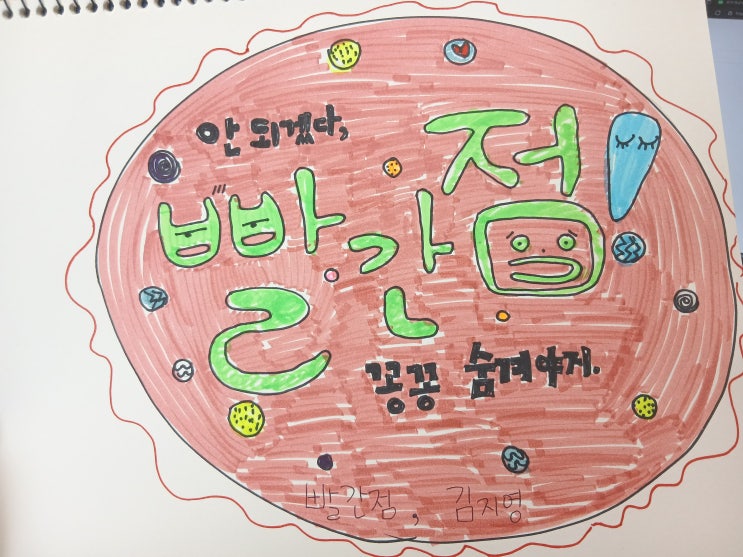 안 되겠다,
빨간점!
꽁꽁 숨겨야지.
빨간점, 김지영